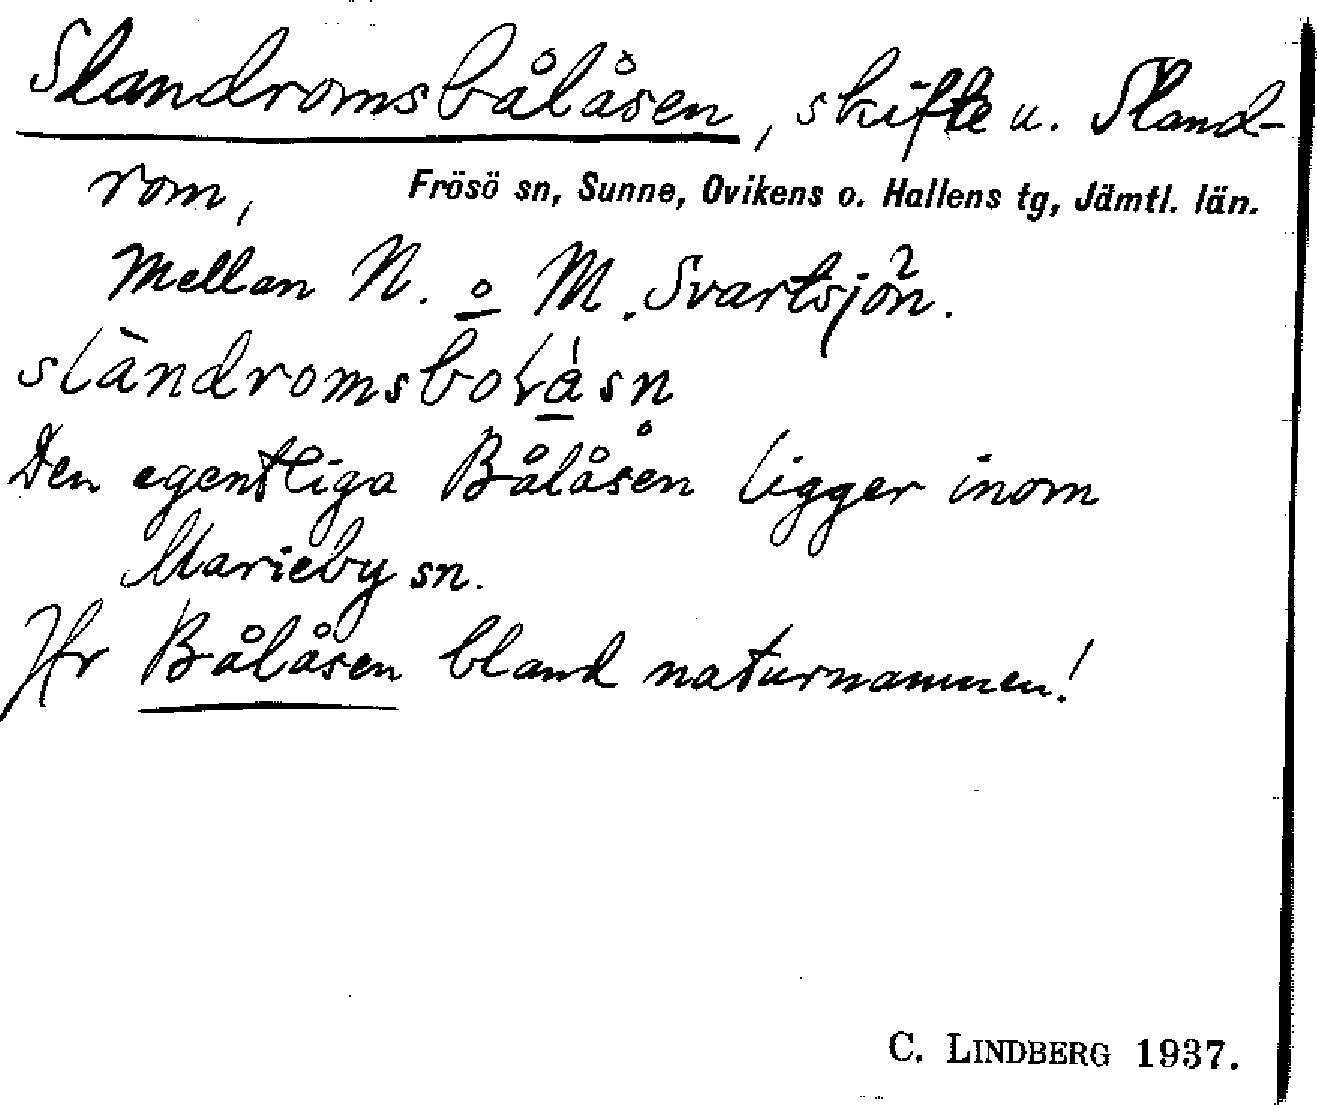 Slandromsbålåsen, skifte u. Sland-
rom, Frösö sn, Sunne, Ovikens o. Hallens tg, Jämtl. län.
Mellan N. o M. Svartsjön.
slàndromsbolåsn
Den egentliga Bålåsen ligger inom
Marieby sn.
Jfr Bålåsen bland naturnamnen!
C. LINDBERG 1937.